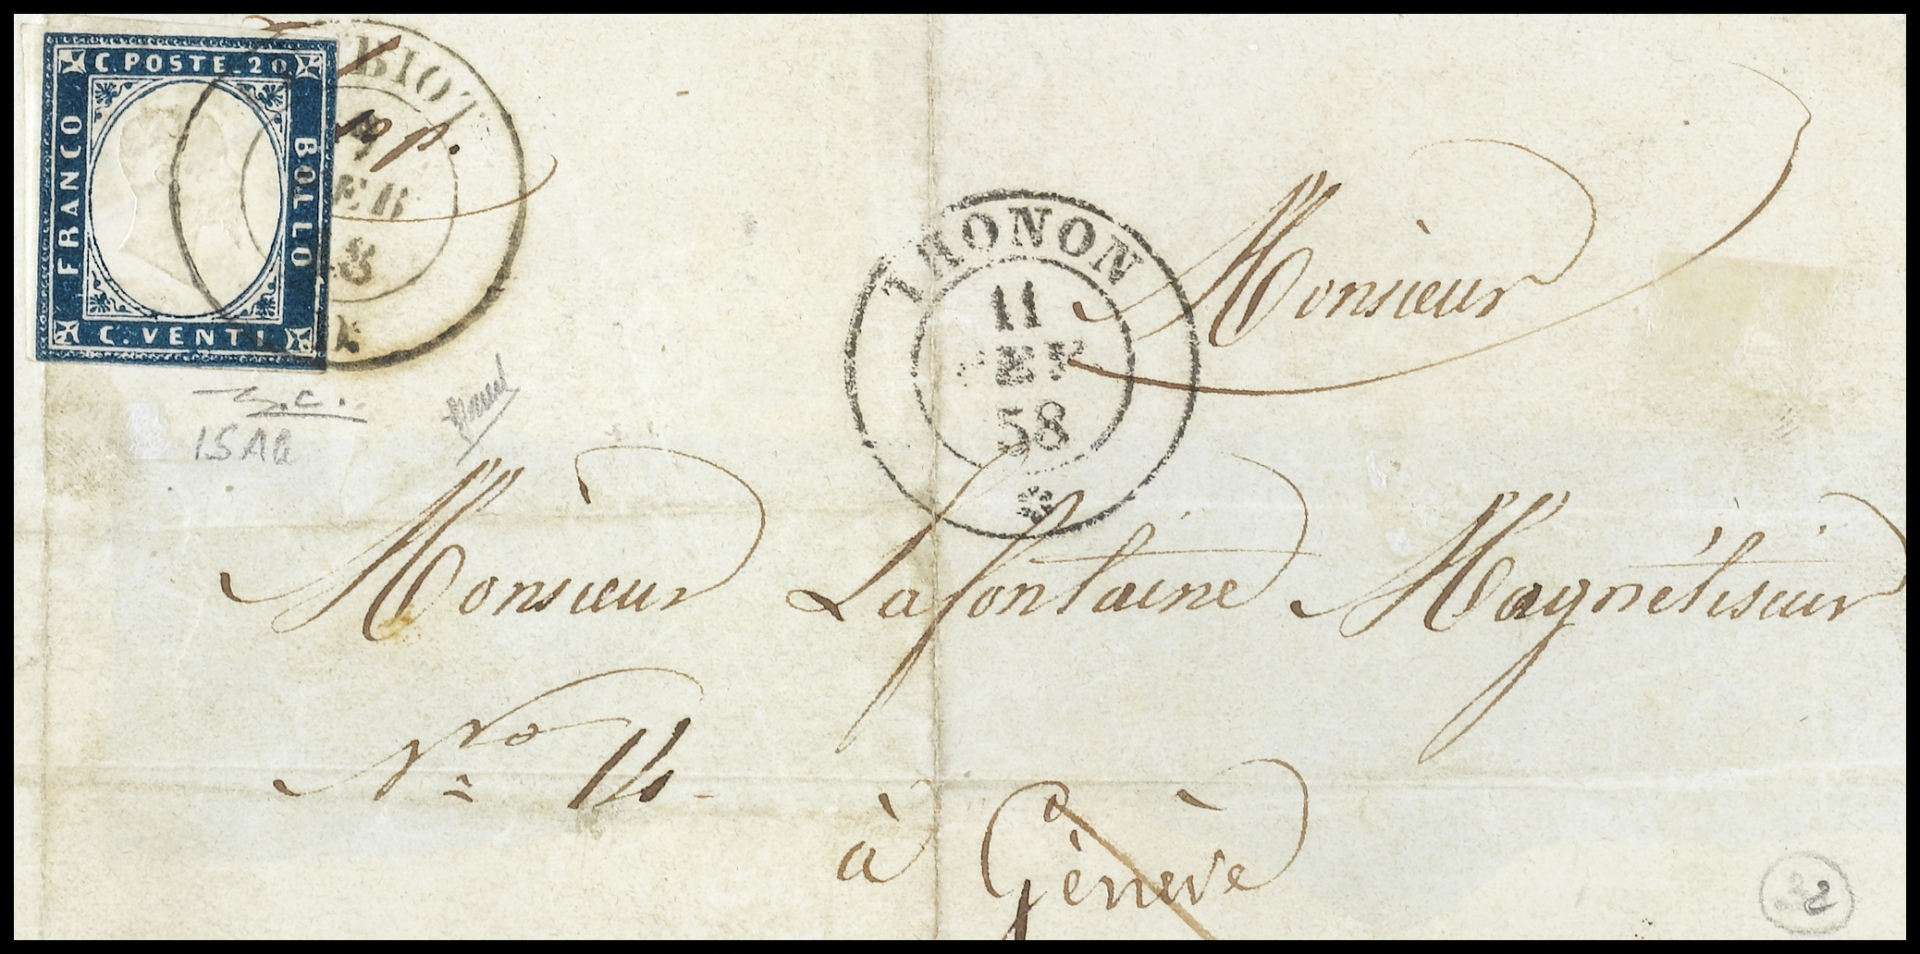 C. POSTE 20
FRANCO
BOLLO
C. VENTI
THONON
11
58
Monsieur
15Ab
Monsieur Lafontaine Magnétiseur
No 14
à Génève
22